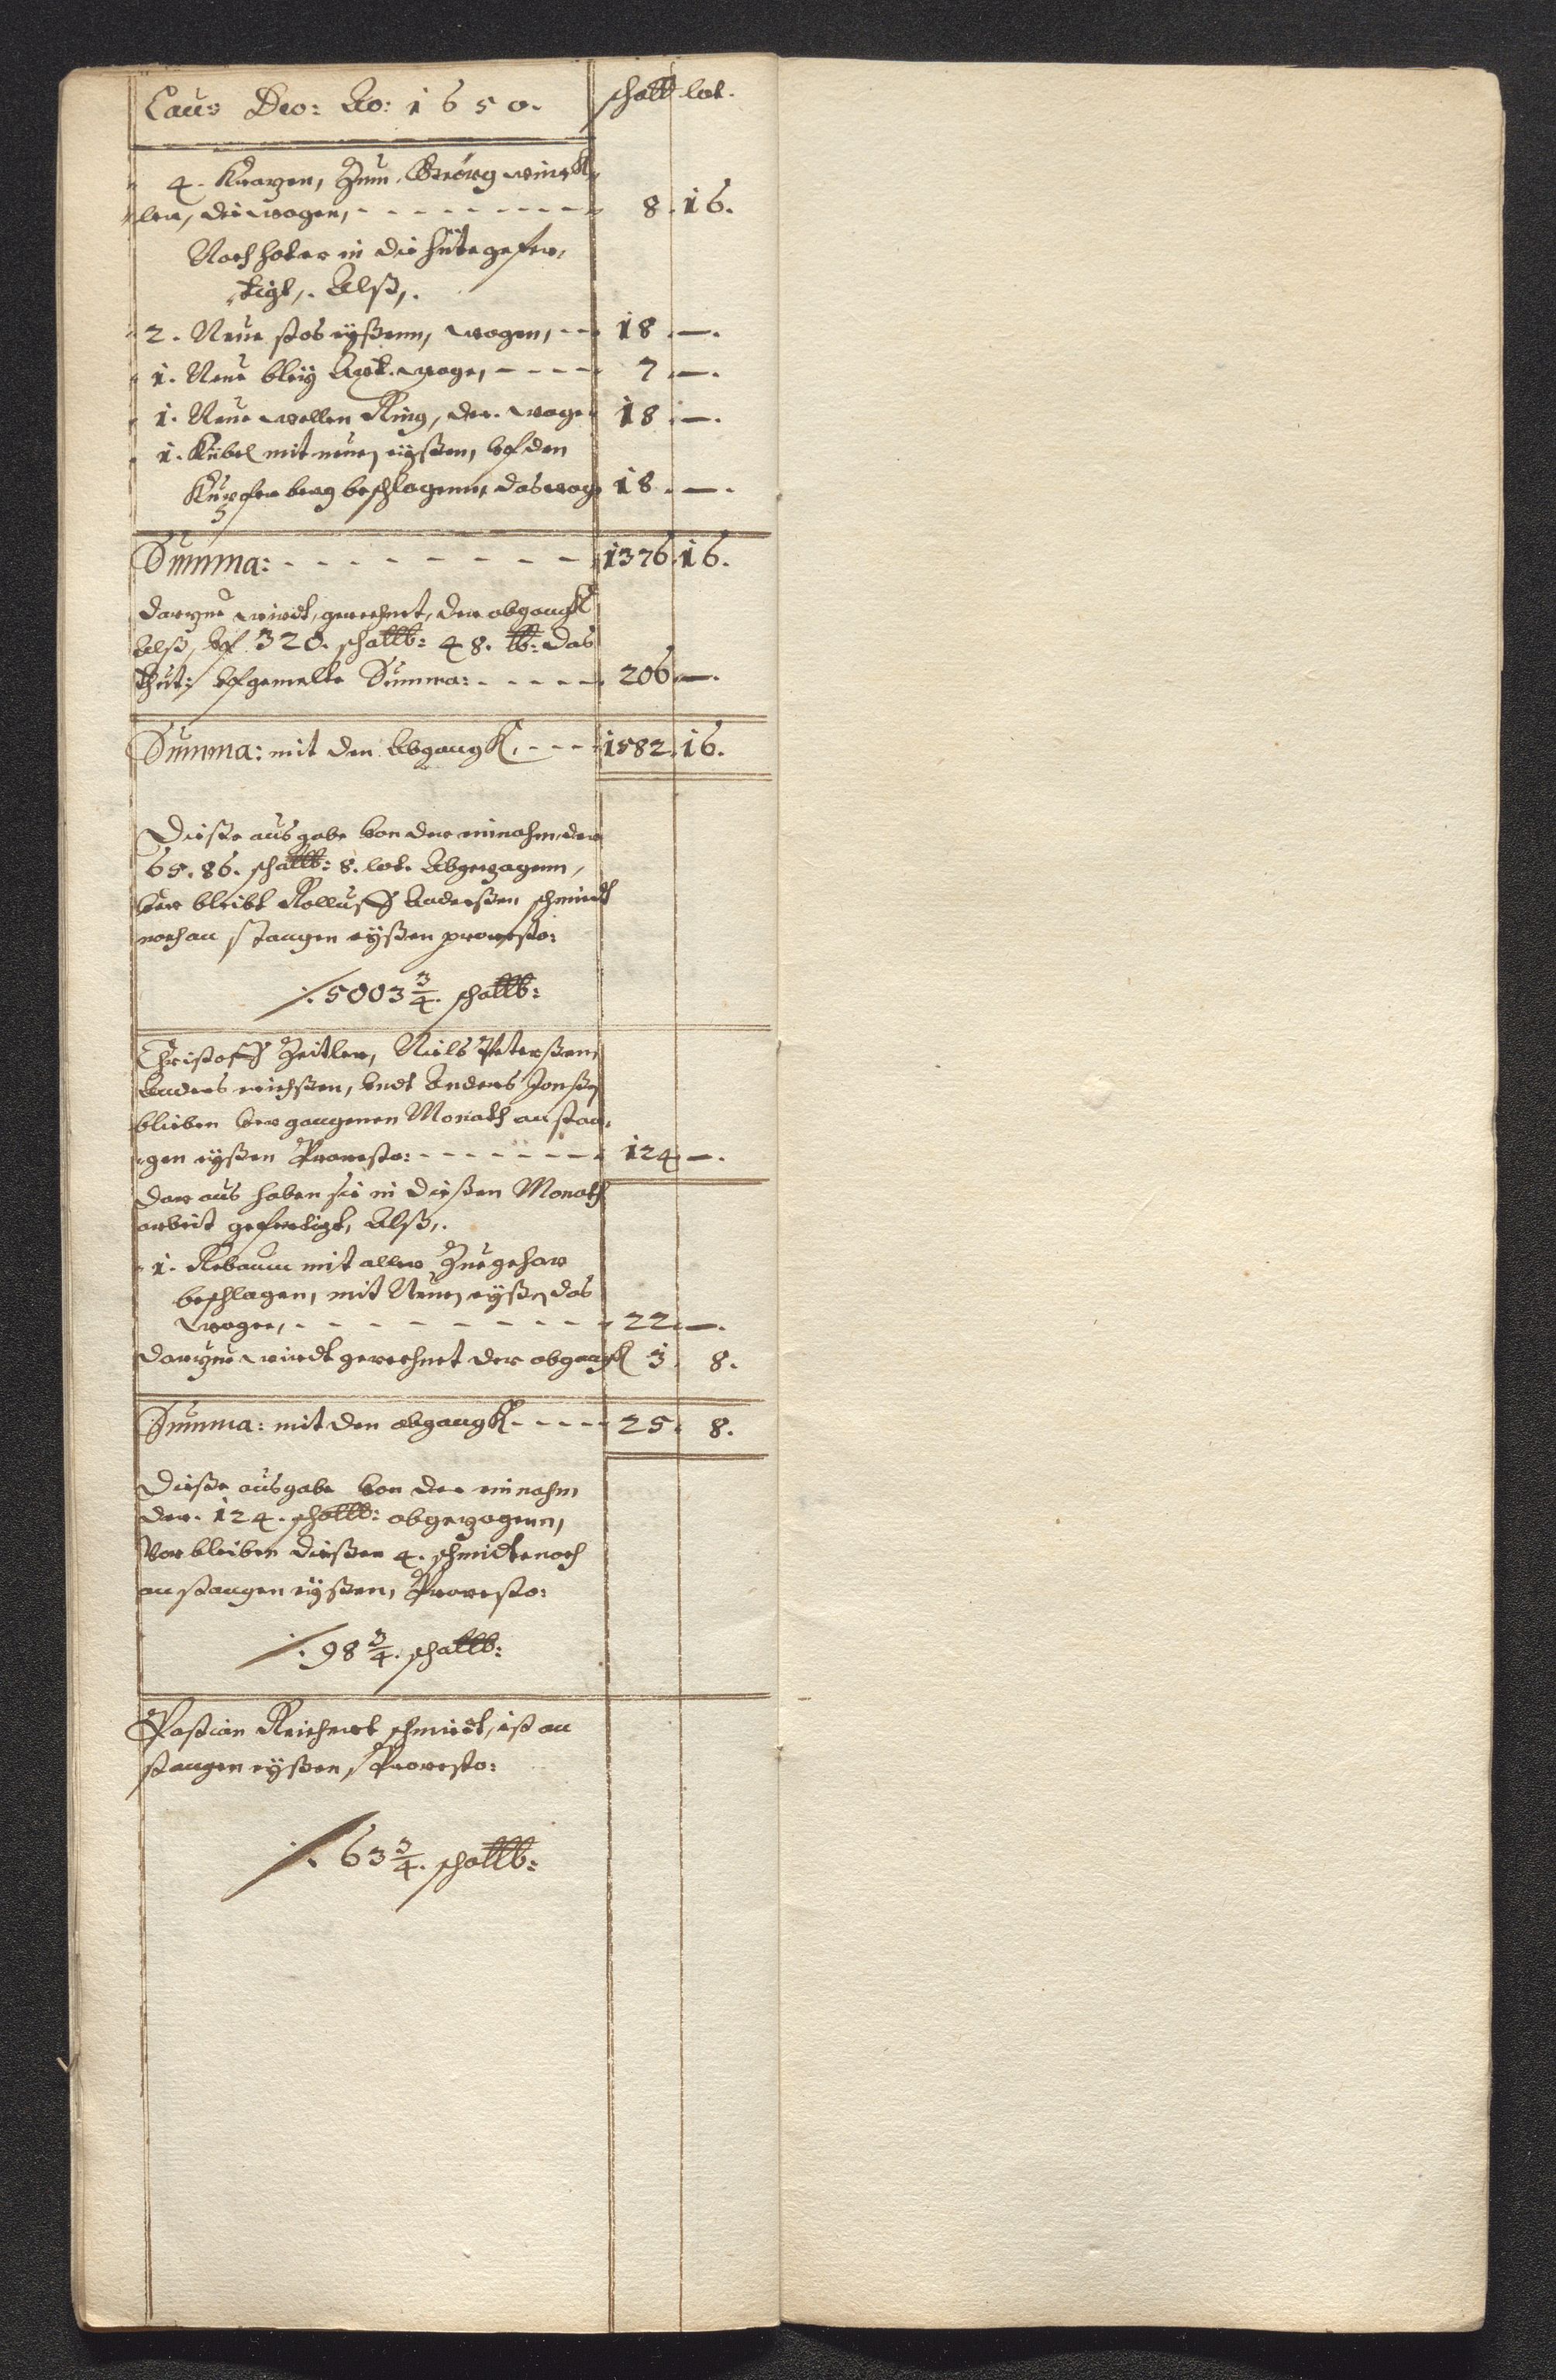 Laus Deo: Ao: 1650. schalb lot.
4. Kratzen, Zum Georg winck¬
len, die wogen, - - - - - - - - - 8. 16.
Noch hater in die hüte gefer¬
tigt, Alß,
2. Neue stos eyßenn, wogen, - - 18. —.
1. Neue bley Axt. woge, - - - - 7 —.
1. Neue wellen Ring, der. woge 18. —.
1. Kübel mit neuen eyßen, vf den
Kupfer berg beschlagenn, das wog 18. —.
Summa: - - - - - - - - 1376. 16.
darzue wirdt, gerechnet, der abgangk
Alß, vf 320. schallb: 48. lb: das
thut: vfgemelte Summa: - - - - - 206 —.
Summa: mit den Abgangk. - - - 1582. 16.
Dieße ausgabe von der einahm, der
65.86. schallb: 8. lot. Abgezogenn,
ver bleibt Rolluff Anderßen schmiedt
noch an stangen eyßen pro resto:
⁒ 5003 3/4. schallb:
Christoff Zeitler, Niels Peterßen,
Anders erichßen, vndt Anders Jonßen
blieben ver gangenen Monath an stan¬
gen eyßen Pro resto: - - - - - - - 124 —.
dar aus haben sie in dießen Monath
arbeit gefertigt, Alß,
1. Rebaum mit aller Zuegehor
beschlagen, mit Neuen eyßen das
wogen, - - - - - - - - - 22. —.
darzue wirdt gerechnet der abgangk 3. 8.
Summa: mit den abgangk - - - - 25. 8.
Dieße ausgabe von der einahm
der. 124. schallb: abgezogenn,
Vor bleiben dießen 4. schmidte noch
an stangen eyßen, Pro resto:
⁒ 98 3/4. schallb:
Pastian Reichert schmiedt, ist an
stangen eyßen, Pro resto:
⁒ 63 3/4. schallb: